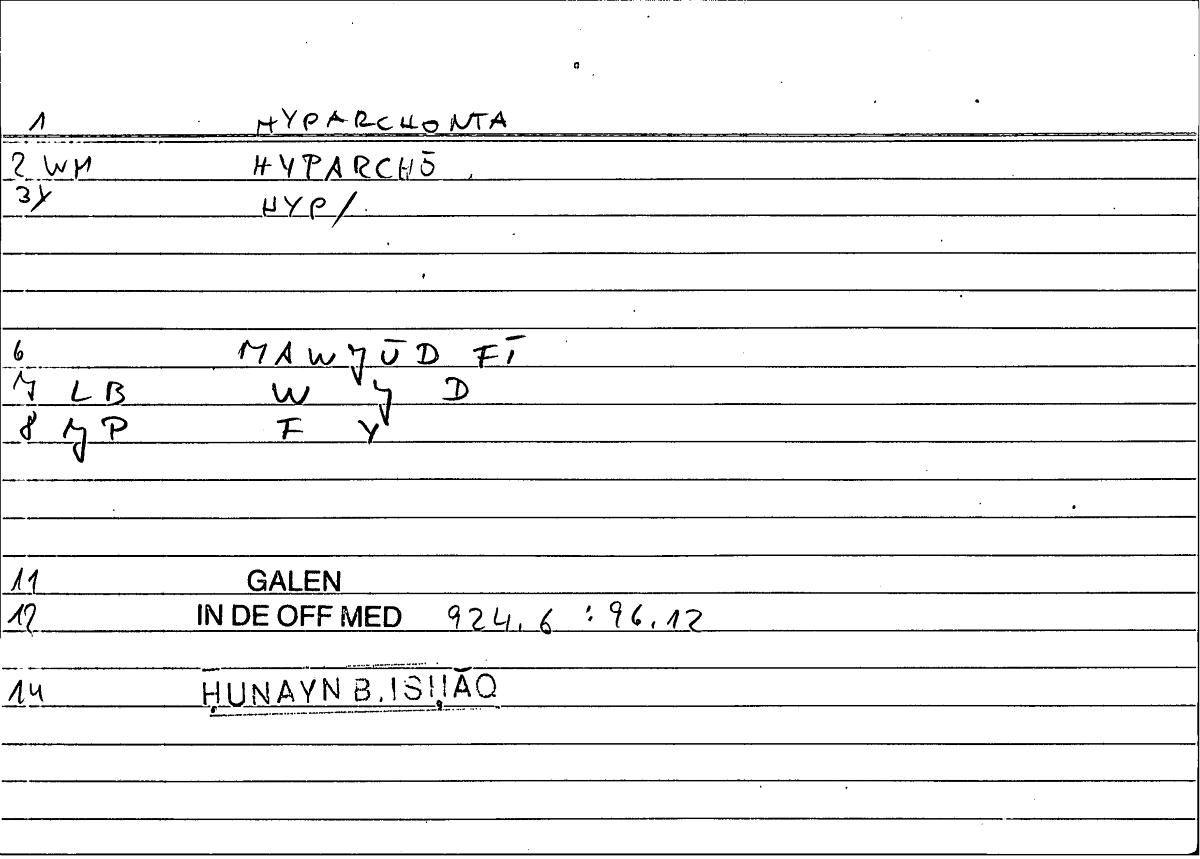 1 HYPARCHONTA
2 WM HYPARCHŌ
3Y HYP/
6 MAWJŪD FĪ
7 LB W J D
8 JP F Y
11 GALEN
12 IN DE OFF MED 924,6 : 96,12
14 ḤUNAYN B. ISḤĀQ